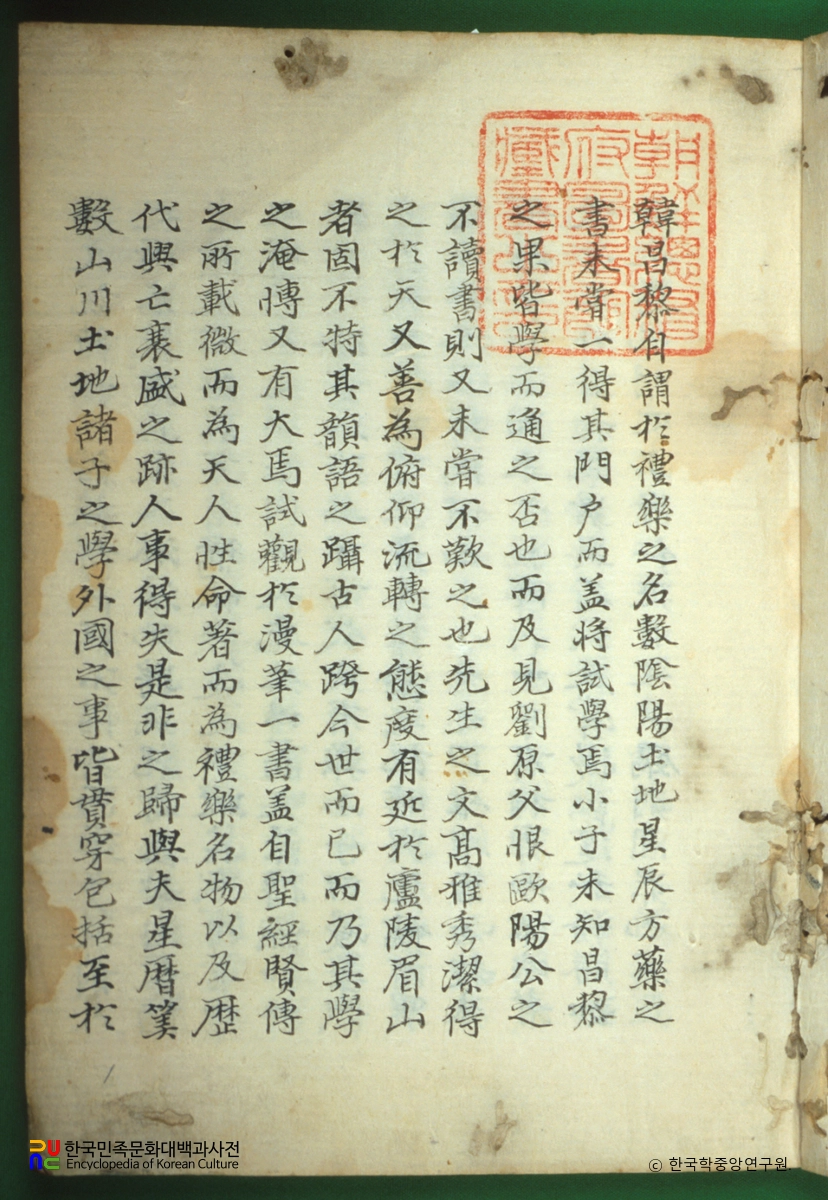 韓昌黎自謂於禮樂之名數陰陽土地星辰方藥之
書未嘗一得其門户而盖将試學焉小子未知昌黎
之果皆學而通之否也而及見劉原父恨歐陽公之
不讀書則又未嘗不歎之也先生之文高雅秀潔得
之於天又善為俯仰流轉之態度有近於廬陵眉山
者固不特其韻語之躡古人跨今世而已而乃其學
之淹博又有大焉試觀於漫筆一書盖自聖經賢傳
之所載微而為天人性命著而為禮樂名物以及歷
代興亡衰盛之跡人事得失是非之歸與夫星曆筭
數山川土地諸子之學外國之事皆貫穿包括至於
朝鮮總督
府圖書館
藏書之印
한국민족문화대백과사전
Encyclopedia of Korean Culture
© 한국학중앙연구원